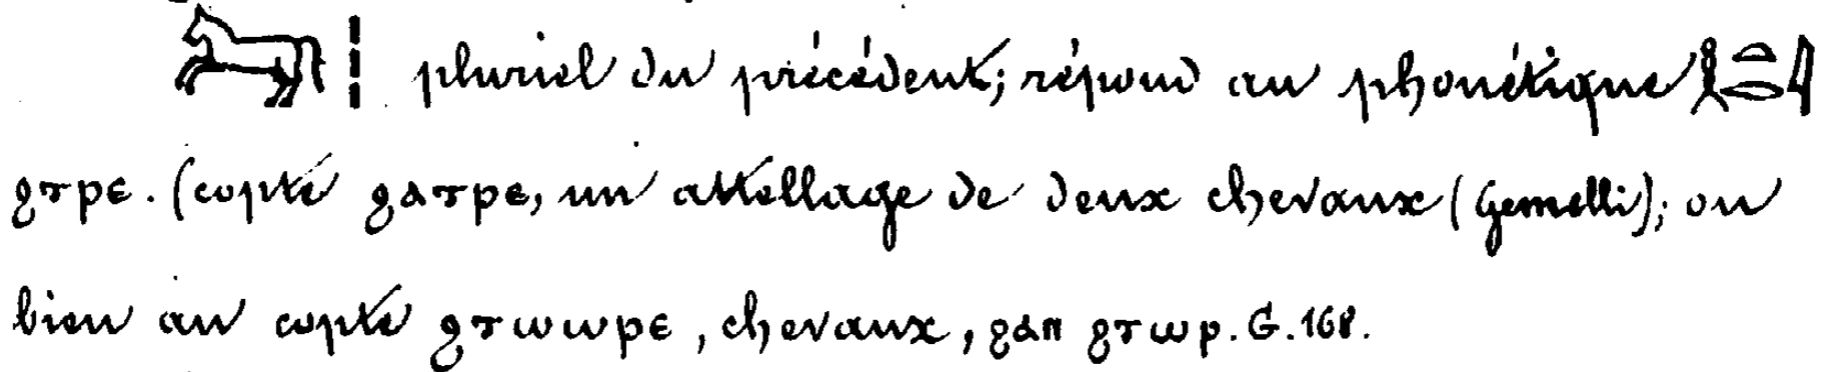 𓃗 𓏪 pluriel du précédent; répond au phonétique 𓎛𓏏𓂋𓇋
ϩⲧⲣⲉ. (copte ϩⲁⲧⲣⲉ, un attellage de deux chevaux (Gemelli); ou
bien au copte ϩⲧⲱⲱⲣⲉ, chevaux, ϩⲁⲛ ϩⲧⲱⲣ. G. 168.